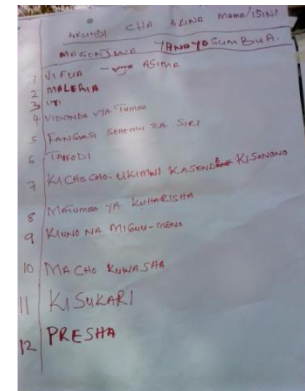 KIKUNDI CHA AKINA MAMA/ISINI
MAGONJWA YANAYOSUMBUA
1 VIFUA - ASIMA
2 MALERIA
3 UTI
4 VIDONDA VYA TUMBO
5 FANGASI SEHEMU ZA SIRI
6 TAIFODI
7 KICHOCHO-UKIMWI KASENDE KISONONO
8 MATUMBO YA KUHARISHA
9 KIUNO NA MIGUU-MENO
10 MACHO KUWASHA
11 KISUKARI
12 PRESHA